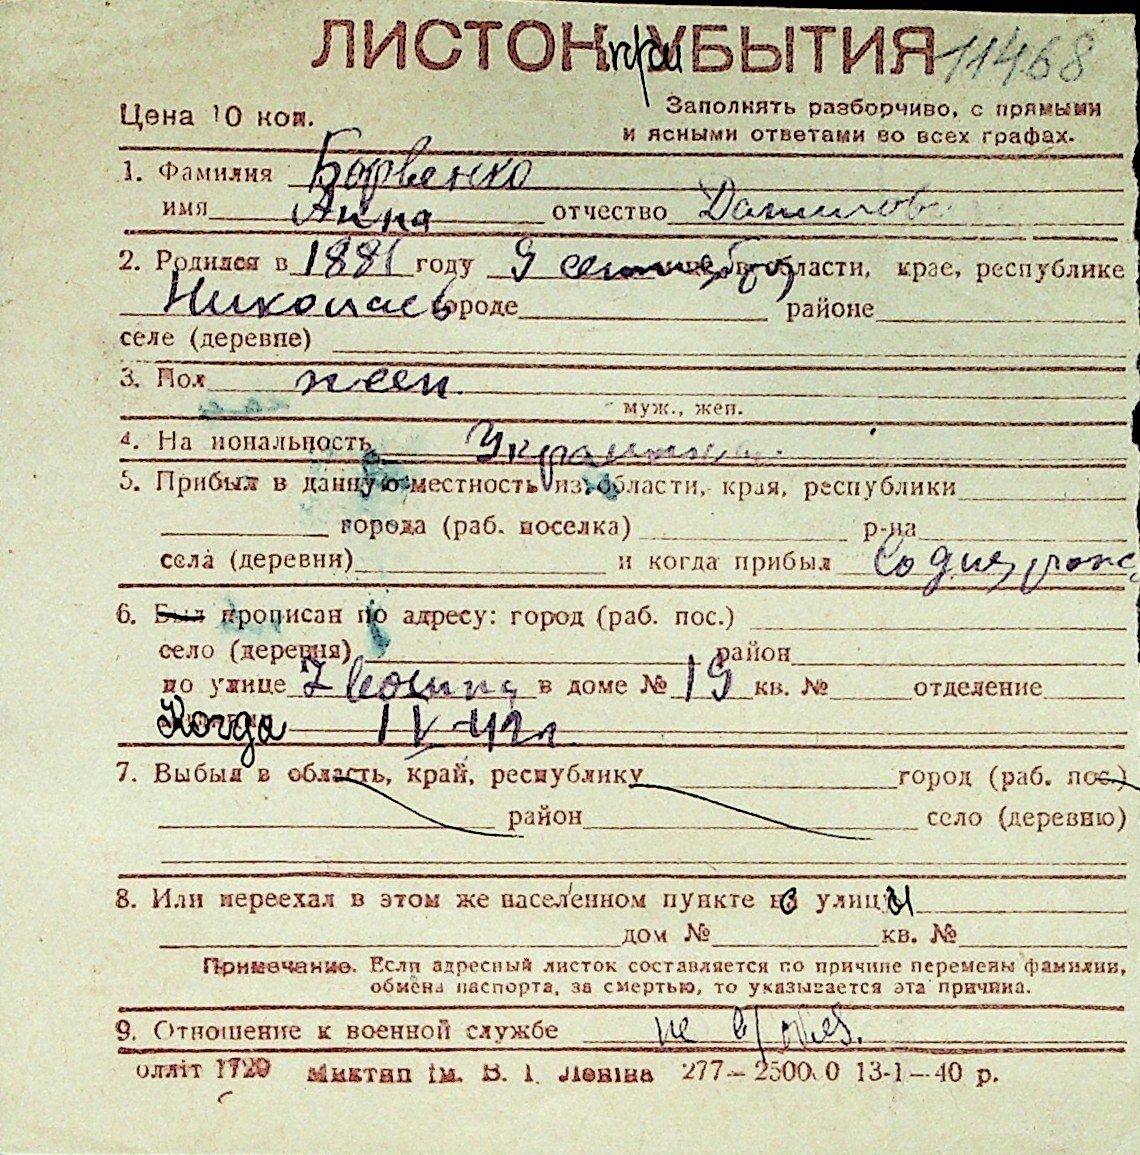 ЛИСТОК при УБЫТИЯ 11468
Цена 10 коп.
Заполнять разборчиво, с прямыми
и ясными ответами во всех графах.
1. Фамилия Барвенко
имя Анна отчество Данилов
2. Родился в 1881 году 9 сентября области, крае, республике
Николаев городе районе
селе (деревне)
3. Пол жен.
муж., жен.
4. На иональность Украинка
5. Прибыл в данную местность из области, края, республики
города (раб. поселка) р-на
села (деревни) и когда прибыл
6. Был прописан по адресу: город (раб. пос.)
село (деревня) район
по улице в доме № 19 кв. № отделение
Когда IV-42г.
7. Выбыл в область, край, республику город (раб. пос.)
район село (деревню)
8. Или переехал в этом же населенном пункте с улицы
дом № кв. №
Примечание. Если адресный листок составляется по причине перемены фамилии,
обмена паспорта, за смертью, то указывается эта причина.
9. Отношение к военной службе не в/обяз.
олліт 1720 Миктип ім. В. І. Леніна 277—25000 13-1—40 р.